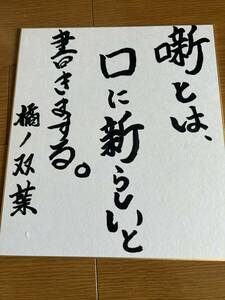 噺とは、
口に新らしいと
書きまする。
橘ノ双葉